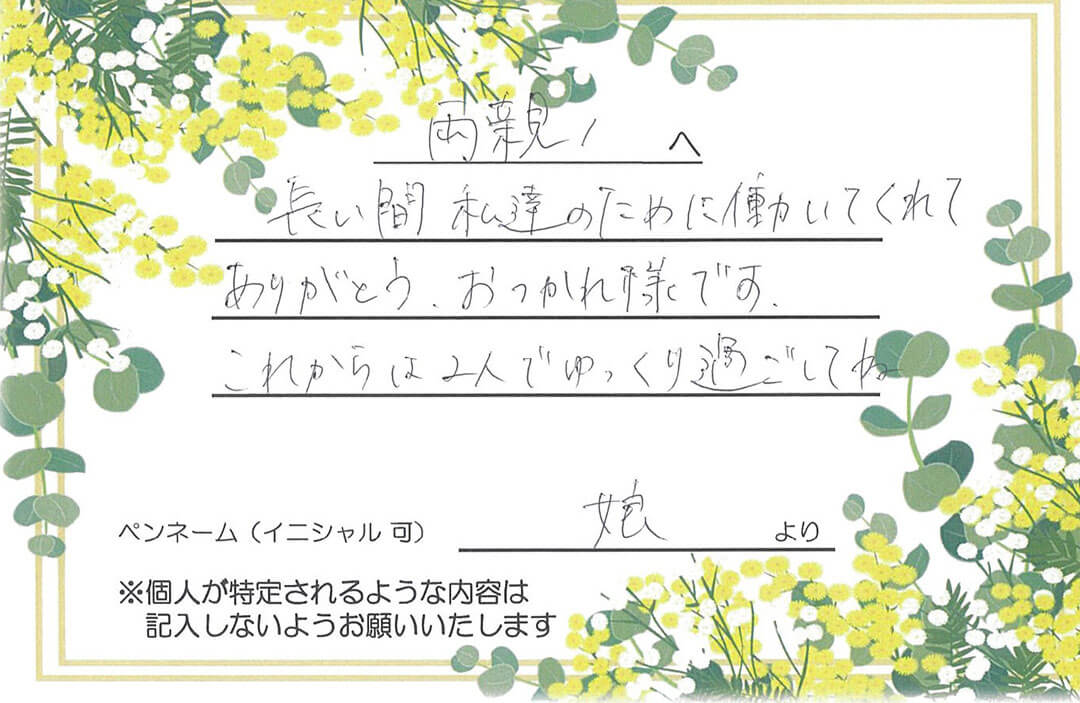 両親へ
長い間 私達のために働いてくれて
ありがとう。おつかれ様です。
これからは2人でゆっくり過ごしてね
ペンネーム（イニシャル 可） 娘 より
※個人が特定されるような内容は
記入しないようお願いいたします